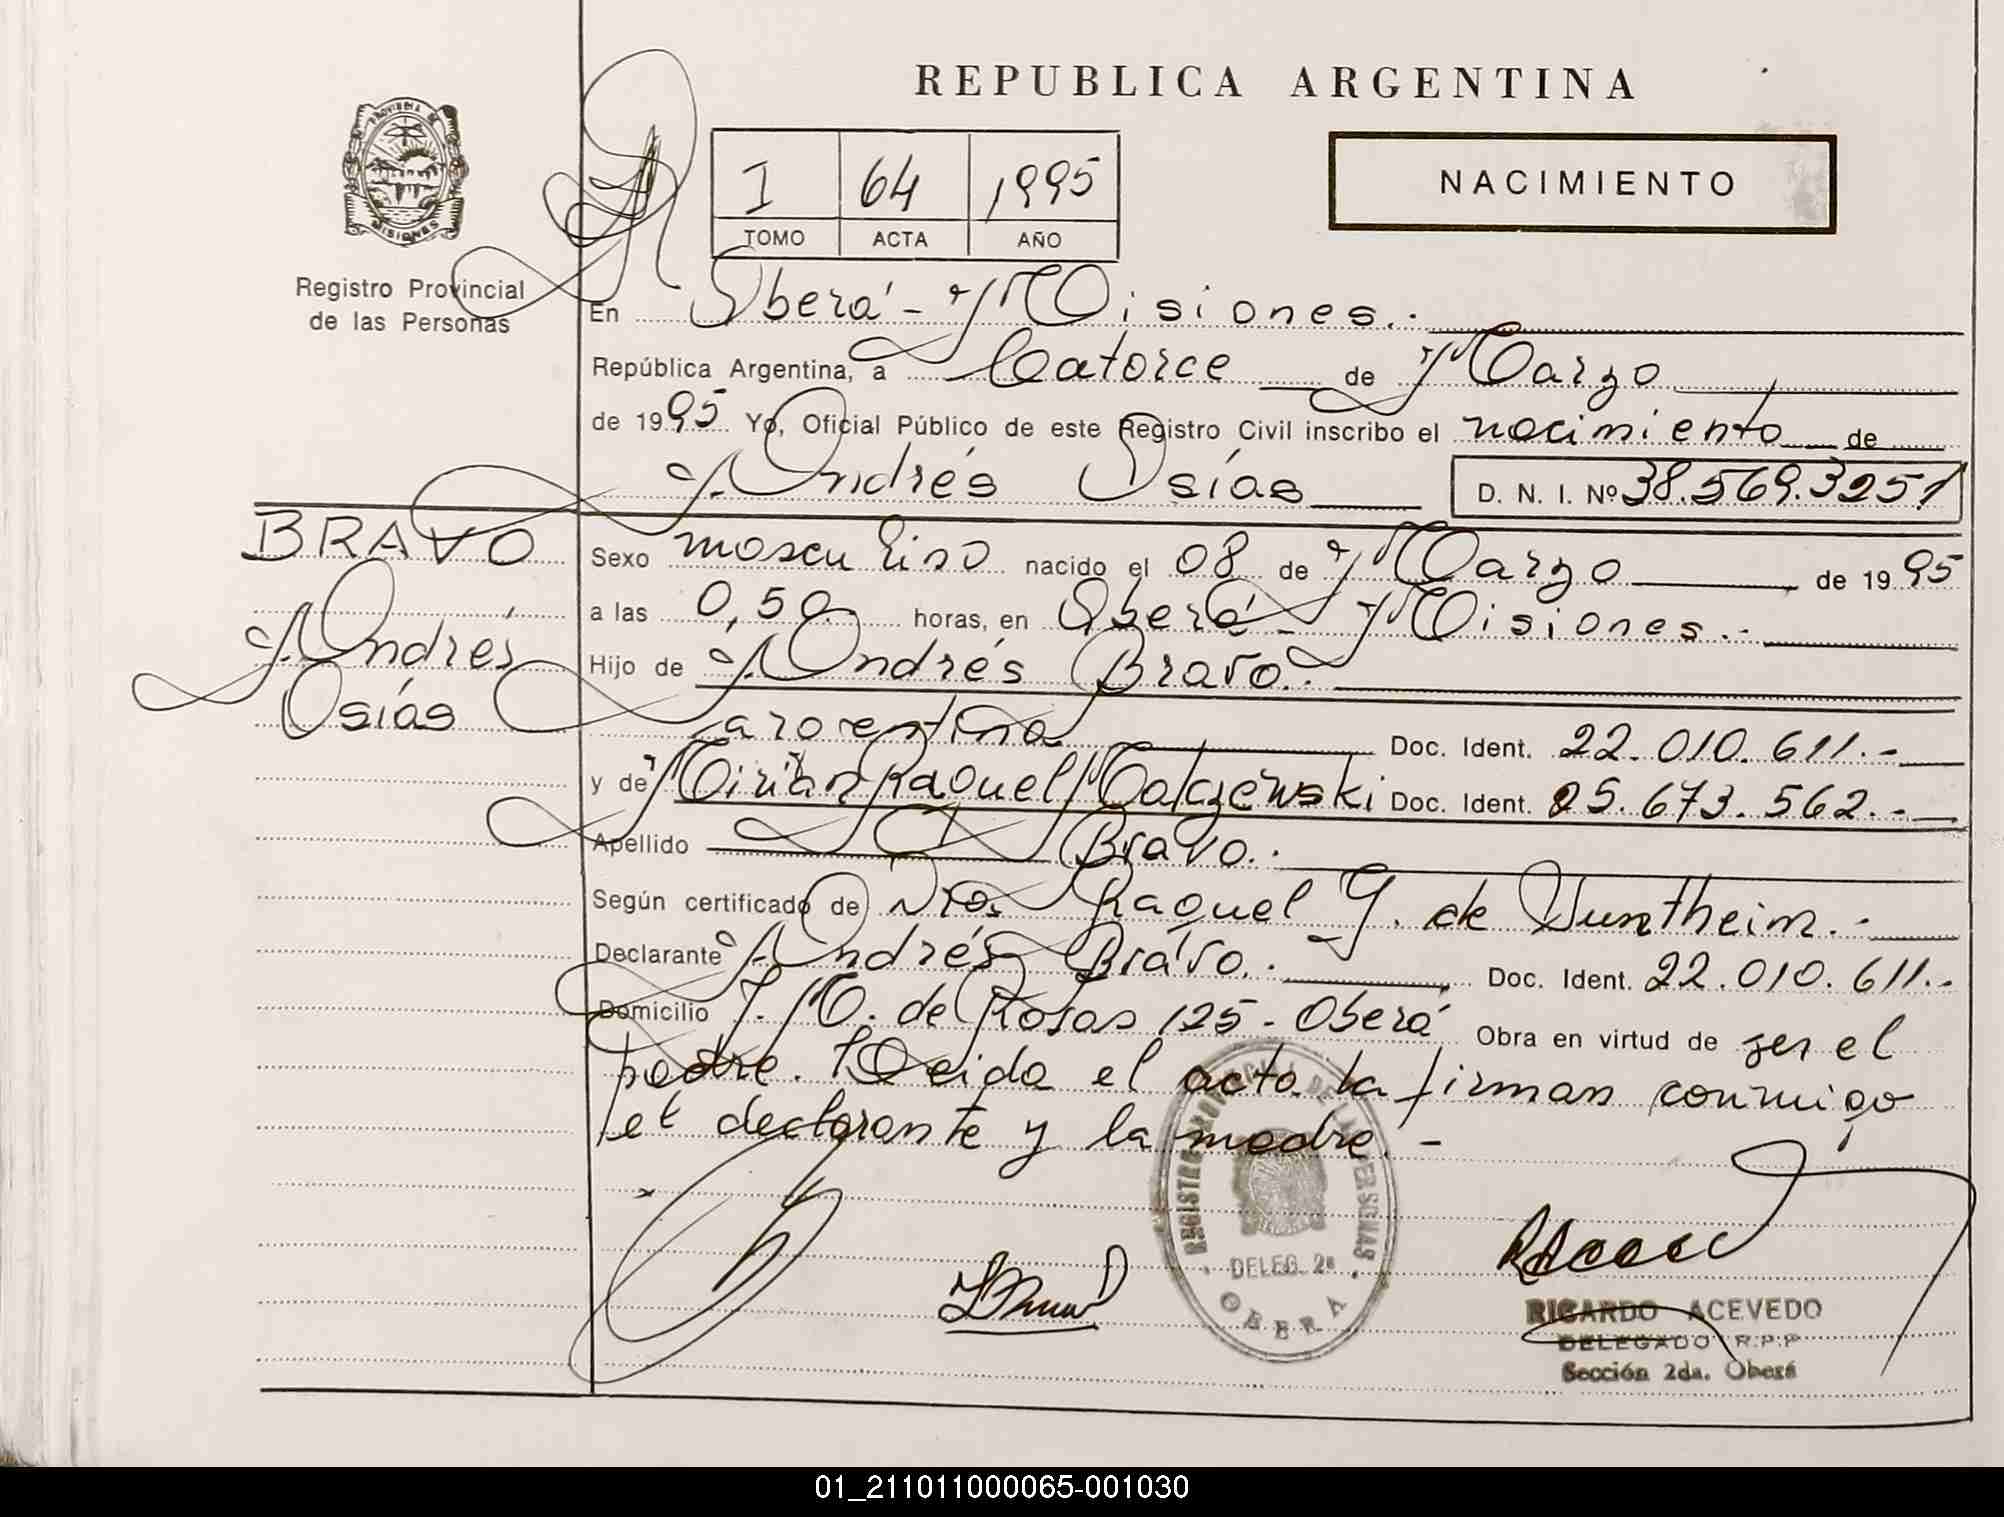 REPUBLICA ARGENTINA
PROVINCIA DE
MISIONES
I 64 1995
TOMO ACTA AÑO
NACIMIENTO
Registro Provincial
de las Personas
En Oberá - Misiones.-
República Argentina, a Catorce de Marzo
de 1995 Yo, Oficial Público de este Registro Civil inscribo el nacimiento de
Andrés Osías D. N. I. Nº 38.569.325
BRAVO
Andrés
Osías
Sexo masculino nacido el 08 de Marzo de 1995
a las 0,50 horas, en Oberá - Misiones.-
Hijo de Andrés Bravo.-
argentina Doc. Ident. 22.010.611.-
y de Mirian Raquel Malczewski Doc. Ident. 25.673.562.-
Apellido Bravo.-
Según certificado de Dra. Raquel G. de Wuntheim.-
Declarante Andrés Bravo.- Doc. Ident. 22.010.611.-
Domicilio J. M. de Rosas 125 - Oberá Obra en virtud de ser el
padre. Leida el acta la firman conmigo
el declarante y la madre.-
REGISTRO PROVINCIAL DE LAS PERSONAS
DELEG. 2ª
OBERA
RICARDO ACEVEDO
DELEGADO R.P.P
Sección 2da. Oberá
01_211011000065-001030